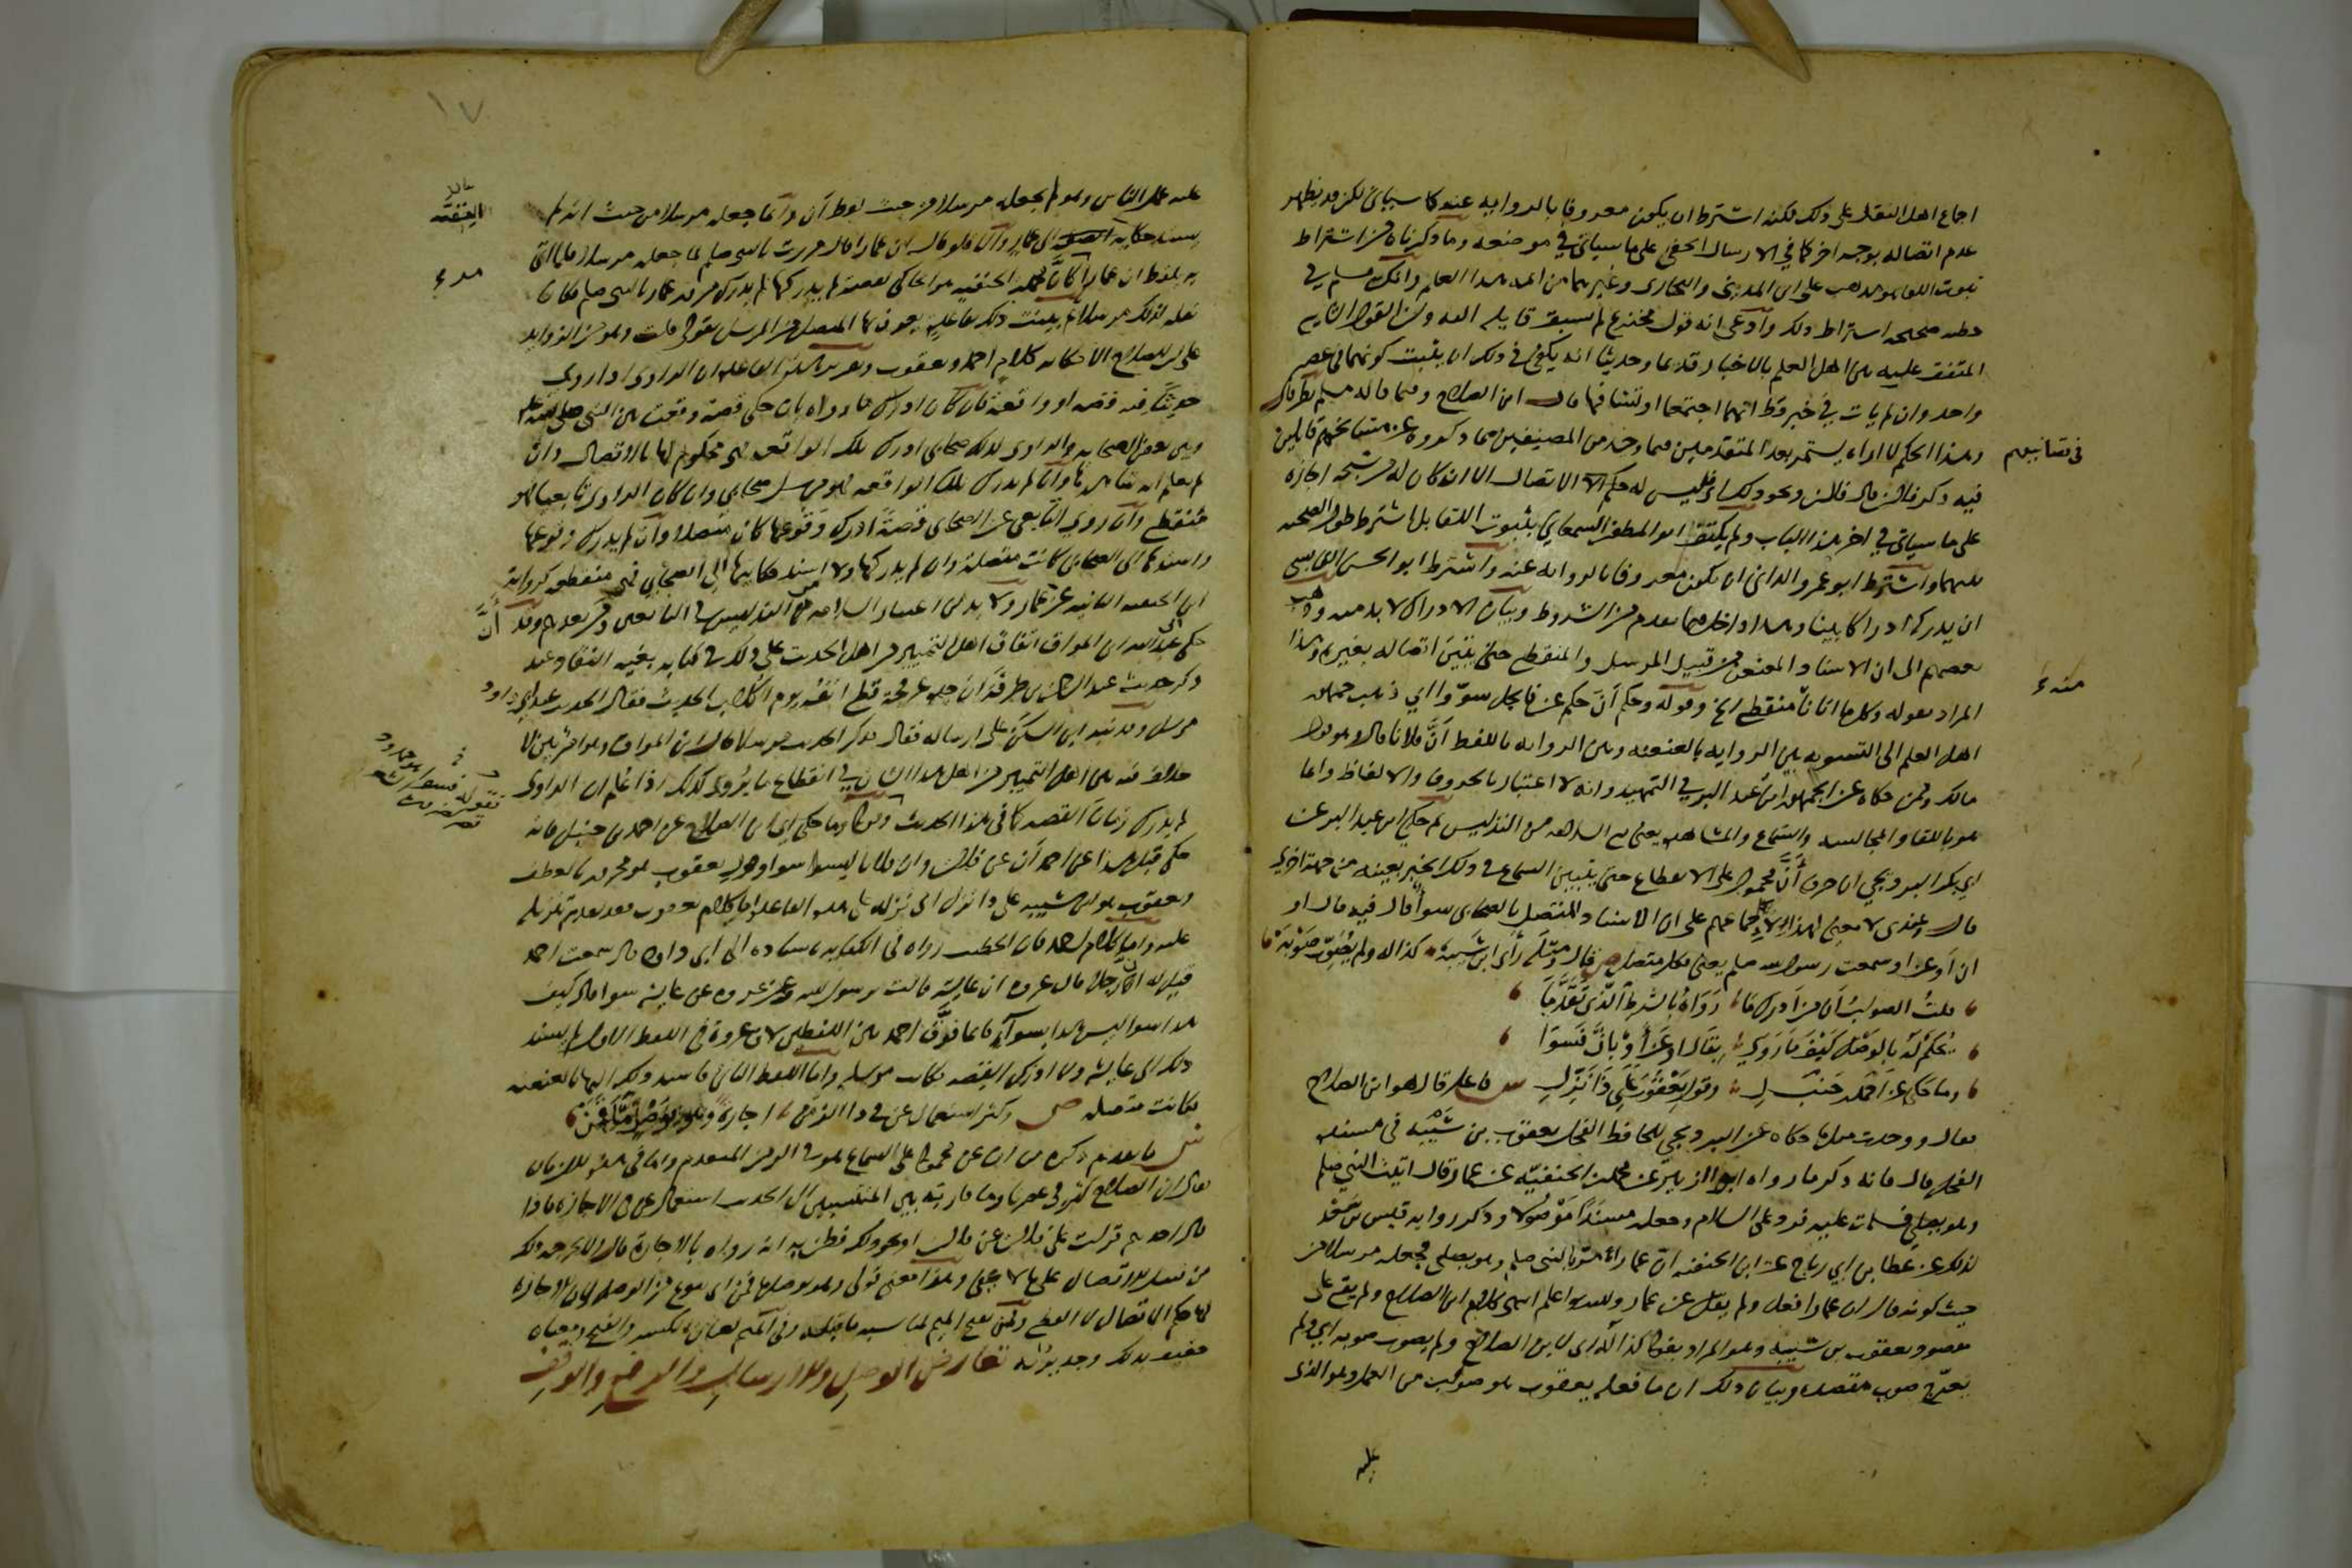 اجماع اهل النقل على ذلك لكنه اشترط ان يكون معروفا بالرواية عنه كما سياتى لكن قد يظهر
عدم اتصاله بوجه اخر كما في الارسال الخفى على ما سياتى في موضعه وما ذكرناه من اشتراط
ثبوت اللقا هو مذهب على ابن المدينى والبخارى وغيرهما من ايمه هذا العلم وانكر مسلم في
خطبه صحيحه اشتراط ذلك وادعى انه قول مخترع لم يسبق قايله اليه وان القول الشايع
المتفق عليه بين اهل العلم بالاخبار قديما وحديثا انه يكفى في ذلك ان يثبت كونهما في عصر
واحد وان لم يات في خبر قط انهما اجتمعا او تشافها قال ابن الصلاح وفيما قاله مسلم نظر قال
وهذا الحكم لا اراه يستمر بعد المتقدمين فيما وجد من المصنفين مما ذكروه عن مشايخهم قايلين
في تصانيفهم
فيه ذكر فلان قال فلان ونحو ذلك اى فليس له حكم الاتصال الا ان كان له من شيخه اجازه
على ما سياتى في اخر هذا الباب ولم يكتف ابو المظفر السمعاني بثبوت اللقا بل اشترط طول الصحبه
بينهما واشترط ابو عمرو الدانى ان يكون معروفا بالروايه عنه واشترط ابو الحسن القابسى
ان يدركه ادراكا بينا وهذا داخل فيما تقدم من الشروط وبيان الادراك لا بد منه وذهب
بعضهم الى ان الاسناد المعنعن من قبيل المرسل والمنقطع حتى يتبين اتصاله بغيره وهذا
المراد بقوله وقيل منقطع الخ وقوله وحكم ان حكم عن فالجل سووا اي ذهب جمهور
منه
اهل العلم الى التسويه بين الروايه بالعنعنه وبين الروايه بلفظ ان فلانا قال وهو قول
مالك وممن حكاه عن الجمهور ابن عبد البر في التمهيد وانه لا اعتبار بالحروف والالفاظ وانما
هو باللقا والمجالسه والسماع والمشاهده يعنى مع السلامه من التدليس ثم حكى ابن عبد البر عن
ابي بكر البرديجي ان حرف ان محمول على الانقطاع حتى يتبين السماع في ذلك الخبر بعينه من جهة اخرى
قال وعندى لا معنى لهذا لاجماعهم على ان الاسناد المتصل بالصحابى سواء قال فيه قال او
ان او عن او سمعت رسول الله صلعم يعنى فكله متصل ص قال ومثله راى ابن شيبة كذا له ولم يصوب صوبه
قلت الصواب ان من ادرك ما رواه بالشرط الذى تقدما
يحكم له بالوصل كيف ما روى بقال او عن او بان فسوا
وما حكى عن احمد بن حنبل وقول يعقوب على ذا نزل ش فاعل قال هو ابن الصلاح
فقال ووجدت مثل ما حكاه عن البرديجي للحافظ الفحل يعقوب بن شيبه في مسنده
الفحل قال فانه ذكر ما رواه ابو الزبير عن محمد بن الحنفيه عن عمار قال اتيت النبي صلعم
وهو يصلي فسلمت عليه فرد على السلام وجعله مسندا موصولا وذكر روايه قيس بن سعد
لذلك عن عطا بن ابي رباح عن ابن الحنفيه ان عمارا مر بالنبى صلعم وهو يصلى فجعله مرسلا من
حيث كونه قال ان عمارا فعل ولم يقل عن عمار والله اعلم انتهى كلام ابن الصلاح ولم يقع على
مقصود يعقوب بن شيبه وهو المراد بقوله كذا له اى لابن الصلاح ولم يصوب صوبه اي ولم
يعرج صوب مقصده وبيان ذلك ان ما فعله يعقوب هو صواب من العمل وهو الذى
عليه
١٧
عليه عمل الناس وهو لم يجعله مرسلا من حيث لفظ ان وانما جعله مرسلا من حيث انه لم
يسند حكايه القصه الى عمار والا فلو قال ان عمارا قال مررت بالنبى صلعم لما جعله مرسلا فلما اتى
به بلفظ ان عمارا كان محمد بن الحنفيه هو الحاكى لقصة لم يدركها لانه لم يدرك مرور عمار بالنبى صلعم فكان
نقله لذلك مرسلا ثم بينت ذلك بقاعدة يعرف بها المتصل من المرسل بقولى قلت وهو من الزوايد
على ابن الصلاح الا حكايه كلام احمد ويعقوب وتقرير هذه القاعده ان الراوى اذا روى
حديثا فيه قصه او واقعة فان كان ادرك ما رواه بان حكى قصة وقعت بين النبى صلى الله عليه
وبين بعض الصحابه والراوى لذلك صحابى ادرك تلك الواقعه فهى محكوم لها بالاتصال وان
لم يعلم انه شاهدها وان لم يدرك تلك الواقعه فهو مرسل صحابي وان كان الراوى تابعيا فهو
منقطع وان روى التابعى عن الصحابى قصة ادرك وقوعها كان متصلا وان لم يدرك وقوعها
واسندها الى الصحابى كانت متصلة وان لم يدركها ولا اسند حكايتها الى الصحابي فهى منقطعه كروايه
ابن الحنفيه الثانيه عن عمار ولا بد من اعتبار السلامه من التدليس في التابعى ومن بعده وقد
حكى ابو عبد الله ابن المواق اتفاق اهل التمييز من اهل الحديث على ذلك في كتابه بغيه النقاد عند
ذكر حديث عبد الرحمن بن طرفة ان جده عرفجة قطع انفه يوم الكلاب الحديث فقال الحديث عند ابى داود
مرسل وقد نبه ابن السكن على ارساله فقال فذكر الحديث مرسلا قال ابن المواق وهو امر بين لا
خلاف فيه بين اهل التمييز من اهل هذا الشان في انقطاع ما يروى كذلك اذا علم ان الراوى
لم يدرك زمان القصه كما في هذا الحديث وقوله وما حكى اي ابن الصلاح عن احمد بن حنبل فانه
حكى قبل هذا عن احمد ان عن فلان وان فلانا ليسوا سواء وقول يعقوب هو مجرور بالعطف
ويعقوب هو ابن شيبه على ذا نزل اى نزله على هذه القاعده اما كلام يعقوب فقد تقدم تنزيله
عليه واما كلام احمد فان الخطيب رواه في الكفايه باسناده الى ابى داود قال سمعت احمد
قيل له ان رجلا قال عروه ان عايشة قالت يا رسول الله وعن عروه عن عايشه سوا قال كيف
هذا سوا ليس هذا بسواء فانما فرق احمد بين اللفظين لان عروة في اللفظ الاول لم يسند
ذلك الى عايشه ولا ادرك القصه فكانت مرسله واما اللفظ الثانى فاسند ذلك اليها بالعنعنه
فكانت متصله ص وكثر استعمال عن في ذا الزمن اجازة وهو بوصل ما قمن
ش ما تقدم ذكره من ان عن محمول على السماع هو في الزمن المتقدم واما في هذه الازمان
فقال ابن الصلاح كثر في عصرنا وما قاربه بين المنتسبين الى الحديث استعمال عن في الاجازه فاذا
قال احدهم قرات على فلان عن فلان او نحو ذلك فظن به انه رواه بالاجازة قال ولا يخرجه ذلك
من قبيل الاتصال على ما لا يخفى وهذا معنى قولى وهو بوصل ما قمن اى بنوع من الوصل لان للاجازه
لها حكم الاتصال لا القطع وقمن بفتح الميم لمناسبه ما قبله وفى الميم لغتان الكسر والفتح ومعناه
حقيق بذلك وجدير به تعارض الوصل والارسال والرفع والوقف